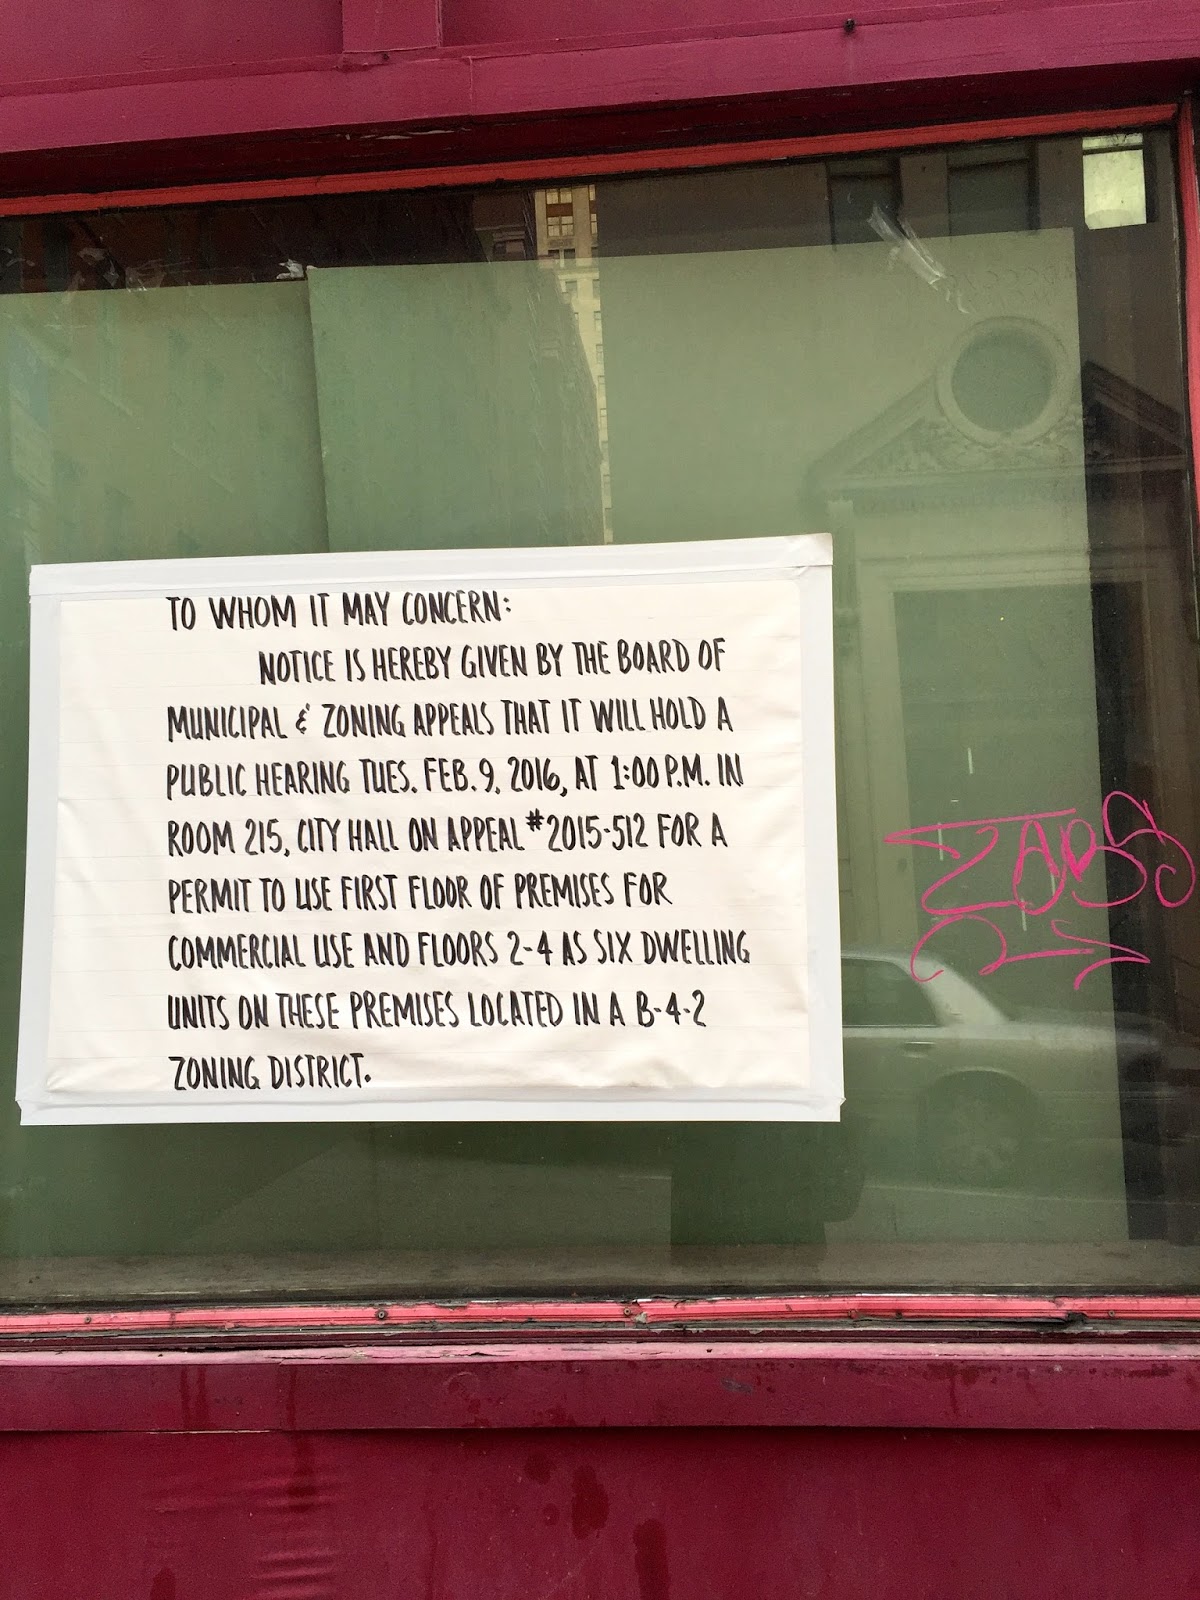 TO WHOM IT MAY CONCERN:
NOTICE IS HEREBY GIVEN BY THE BOARD OF
MUNICIPAL & ZONING APPEALS THAT IT WILL HOLD A
PUBLIC HEARING TUES. FEB. 9, 2016, AT 1:00 P.M. IN
ROOM 215, CITY HALL ON APPEAL #2015-512 FOR A
PERMIT TO USE FIRST FLOOR OF PREMISES FOR
COMMERCIAL USE AND FLOORS 2-4 AS SIX DWELLING
UNITS ON THESE PREMISES LOCATED IN A B-4-2
ZONING DISTRICT.